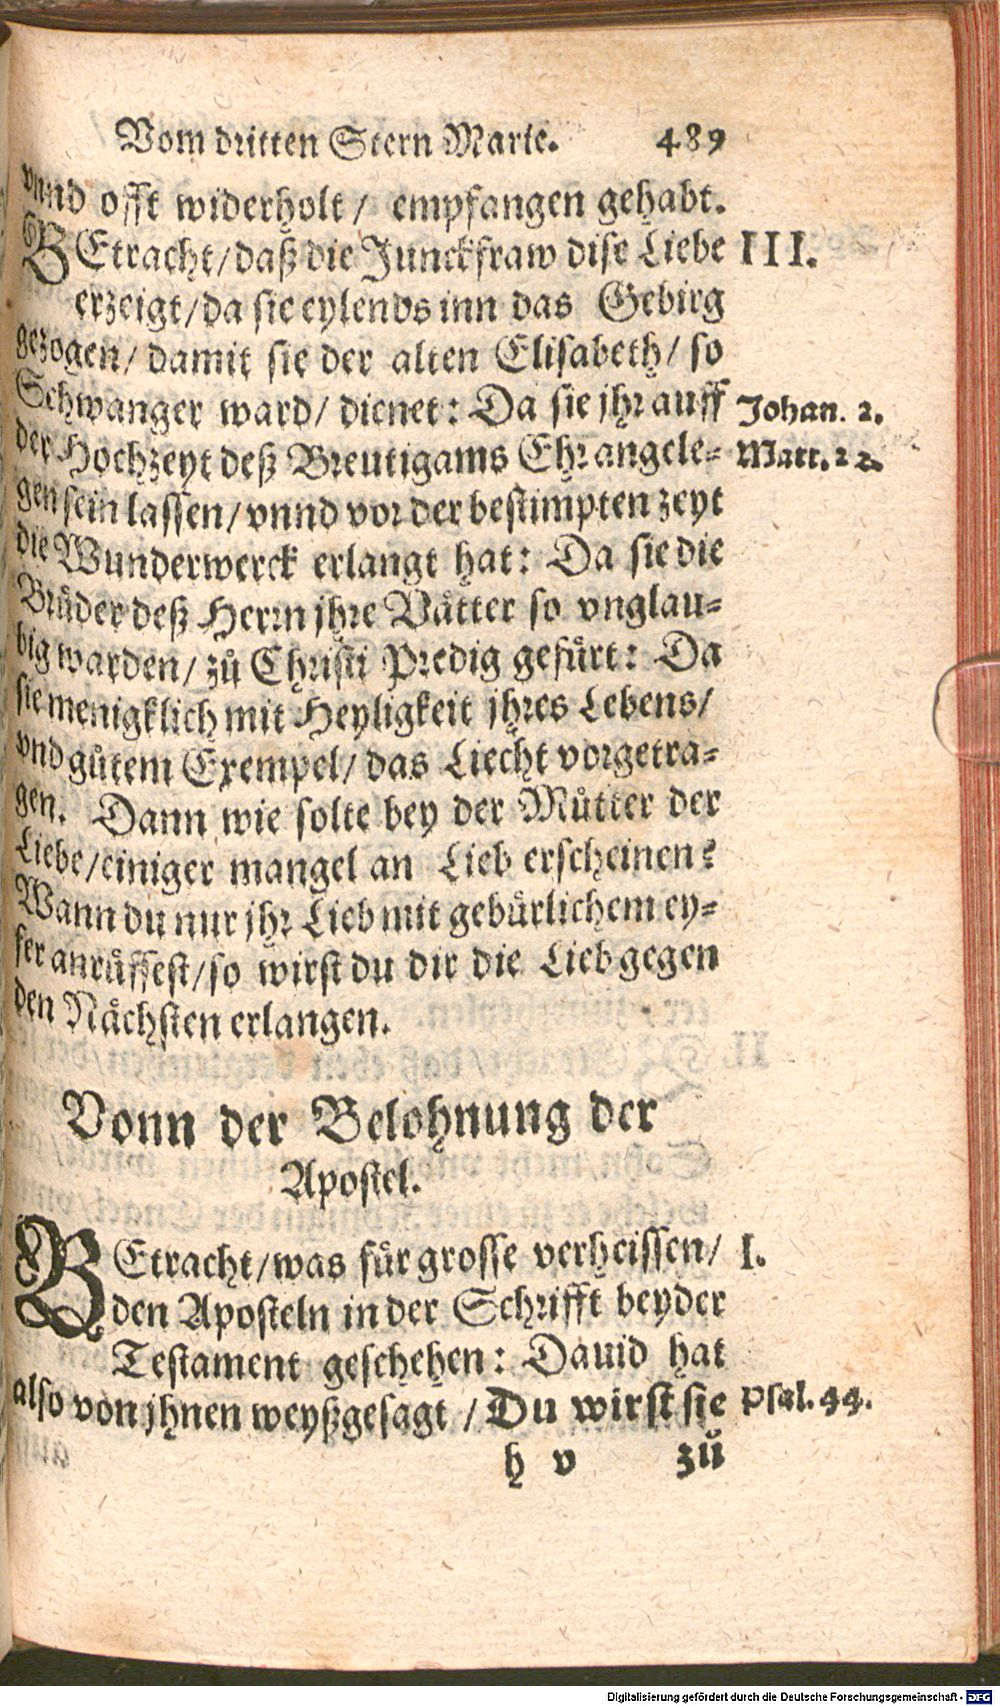 Vom dritten Stern Marie. 489
vnnd offt widerholt / empfangen gehabt.
BEtracht / daß die Junckfraw dise Liebe III.
erzeigt / da sie eylends inn das Gebirg
gezogen / damit sie der alten Elisabeth / so
Schwanger ward / dienet : Da sie jhr auff Johan. 2.
der Hochzeyt deß Breutigams Ehr angele= Matt. 22.
gen sein lassen / vnnd vor der bestimpten zeyt
die Wunderwerck erlangt hat : Da sie die
Brüder deß Herrn jhre Vätter so vnglau=
big warden / zů Christi Predig gefürt : Da
sie menigklich mit Heyligkeit jhres Lebens /
vnd gůtem Exempel / das Liecht vorgetra=
gen. Dann wie solte bey der Můtter der
Liebe / einiger mangel an Lieb erscheinen ?
Wann du nur jhr Lieb mit gebürlichem ey=
fer anrůffest / so wirst du dir die Lieb gegen
den Nächsten erlangen.
Vonn der Belohnung der
Apostel.
BEtracht / was für grosse verheissen / I.
den Aposteln in der Schrifft beyder
Testament geschehen : Dauid hat
also von jhnen weyßgesagt / Du wirst sie Psal. 44.
h v zů
Digitalisierung gefördert durch die Deutsche Forschungsgemeinschaft - DFG